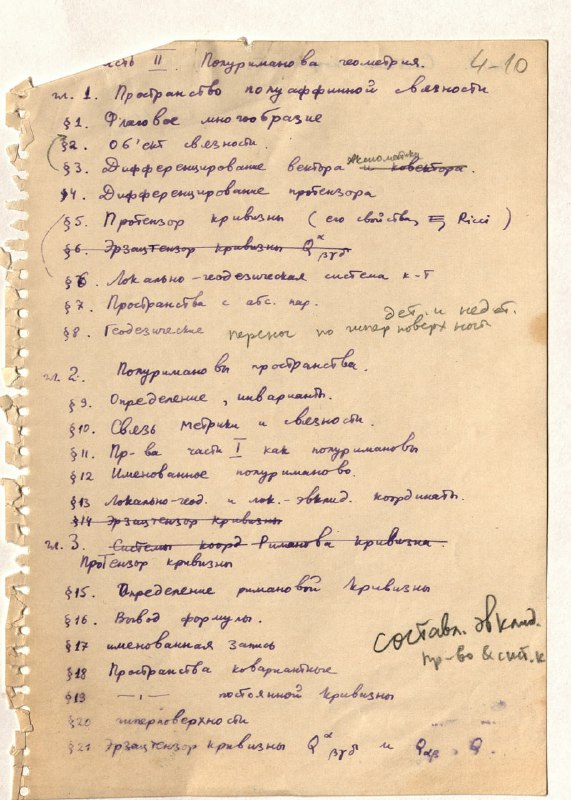 часть II. Полуриманова геометрия. 4-10
гл. 1. Пространство полуаффинной связности
§1. Флаговое многообразие
§2. Об'ект связности.
§3. Дифференцирование вектора и ковектора.
§4. Дифференцирование протензора
§5. Протензор кривизны (его свойства, Ricci)
§6. Эрзацтензор кривизны Q^α_βγδ
§6. Локально-геодезическая система к-т
§7. Пространства с абс. пар.
дет. и недет.
§8. Геодезические перенос по гиперповерхности
гл. 2. Полуримановы пространства.
§9. Определение, инварианты.
§10. Связь метрики и связности.
§11. Пр-ва части I как полуримановы
§12 Именованное полуриманово.
§13 Локально-геод. и лок.-эвклид. координаты.
§14 Эрзацтензор кривизны
гл. 3. Системы коорд Риманова кривизна.
Протензор кривизны
§15. Определение римановой кривизны
§16. Вывод формулы.
§17 именованная запись
составл. эвклид.
пр-во & сист. к
§18 Пространства ковариантные
§19 —ı— постоянной кривизны
§20 гиперповерхности
§21 Эрзацтензор кривизны Q^α_βγδ и Q_αβ, Q.